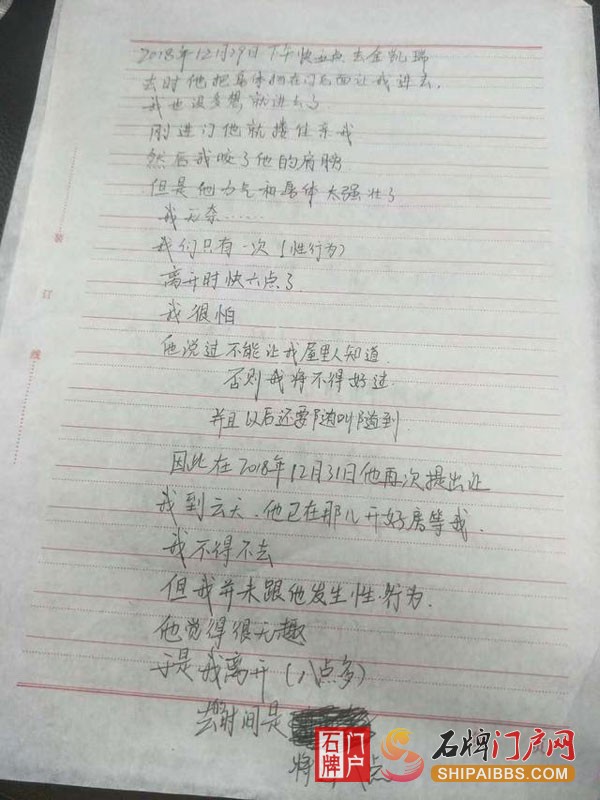 2018年12月29日下午快五点去金凯瑞
去时他把身体掩在门后面让我进去.
我也没多想就进去了
刚进门他就搂住亲我
然后我咬了他的肩膀
但是他力气和身体太强壮了
我无奈……
我们只有一次(性行为)
离开时快六点了
我很怕
他说过不能让我屋里人知道
否则我将不得好过.
并且以后还要随叫随到
因此在2018年12月31日他再次提出让
我到云天、他已在那儿开好房等我.
我不得不去
但我并未跟他发生性行为.
他觉得很无趣
于是我离开(八点多)
去时间是
将 点
装
订
线
石牌
门户
石牌门户网
SHIPAIBBS.COM